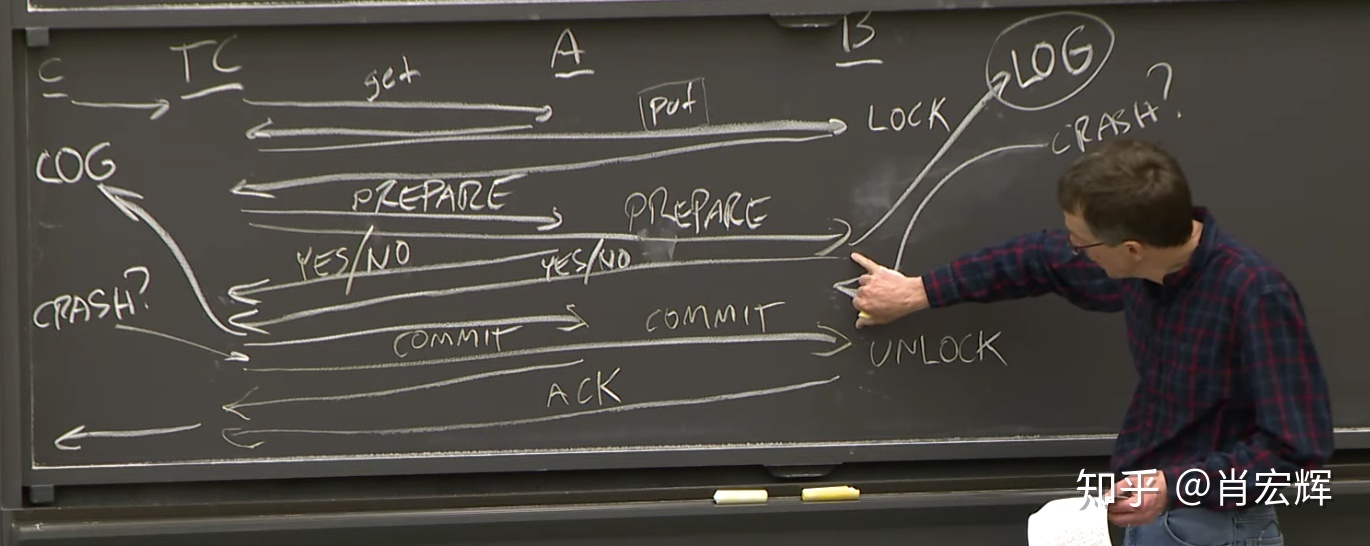 C TC A B
get
put
LOCK
LOG
CRASH?
LOG
PREPARE PREPARE
YES/NO YES/NO
CRASH?
COMMIT COMMIT
UNLOCK
ACK
知乎 @肖宏辉